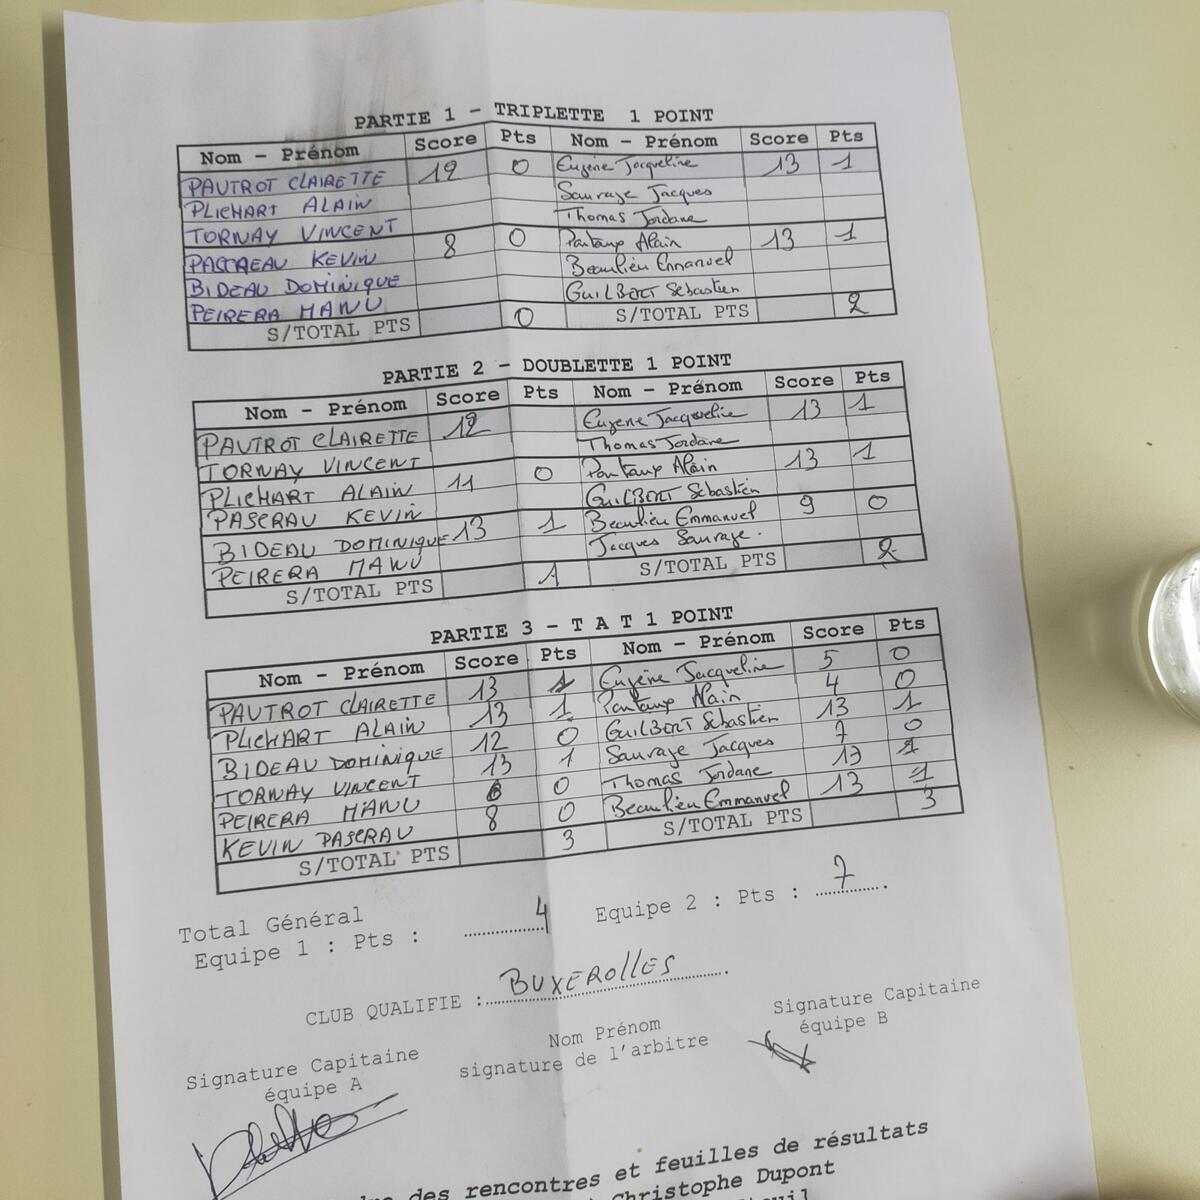 PARTIE 1 - TRIPLETTE 1 POINT
Nom - Prénom Score Pts Nom - Prénom Score Pts
PAUTROT CLAIRETTE 12 0 Eugène Jacqueline 13 1
PLICHART ALAIN Sauraye Jacques
TORNAY VINCENT Thomas Jordane
PASCREAU KEVIN 8 0 Pantaup Alain 13 1
BIDEAU DOMINIQUE Beaulieu Emmanuel
PEIRERA MANU GUILBERT Sébastien
S/TOTAL PTS 0 S/TOTAL PTS 2
PARTIE 2 - DOUBLETTE 1 POINT
Nom - Prénom Score Pts Nom - Prénom Score Pts
PAUTROT CLAIRETTE 12 Eugène Jacqueline 13 1
TORNAY VINCENT Thomas Jordane
PLICHART ALAIN 11 0 Pantaup Alain 13 1
PASCRAU KEVIN GUILBERT Sébastien
BIDEAU DOMINIQUE 13 1 Beaulieu Emmanuel 9 0
PEIRERA MANU Jacques Sauraye.
S/TOTAL PTS 1 S/TOTAL PTS 2
PARTIE 3 - T A T 1 POINT
Nom - Prénom Score Pts Nom - Prénom Score Pts
PAUTROT CLAIRETTE 13 1 Eugène Jacqueline 5 0
PLICHART ALAIN 13 1 Pantaup Alain 4 0
BIDEAU DOMINIQUE 12 0 GUILBERT Sébastien 13 1
TORNAY VINCENT 13 1 Sauraye Jacques 7 0
PEIRERA MANU 6 0 Thomas Jordane 13 1
KEVIN PASCRAU 8 0 Beaulieu Emmanuel 13 1
S/TOTAL PTS 3 S/TOTAL PTS 3
Total Général
Equipe 1 : Pts : 4 Equipe 2 : Pts : 7
CLUB QUALIFIE : BUXEROLLES
Signature Capitaine
équipe A
Nom Prénom
signature de l'arbitre
Signature Capitaine
équipe B
des rencontres et feuilles de résultats
Christophe Dupont